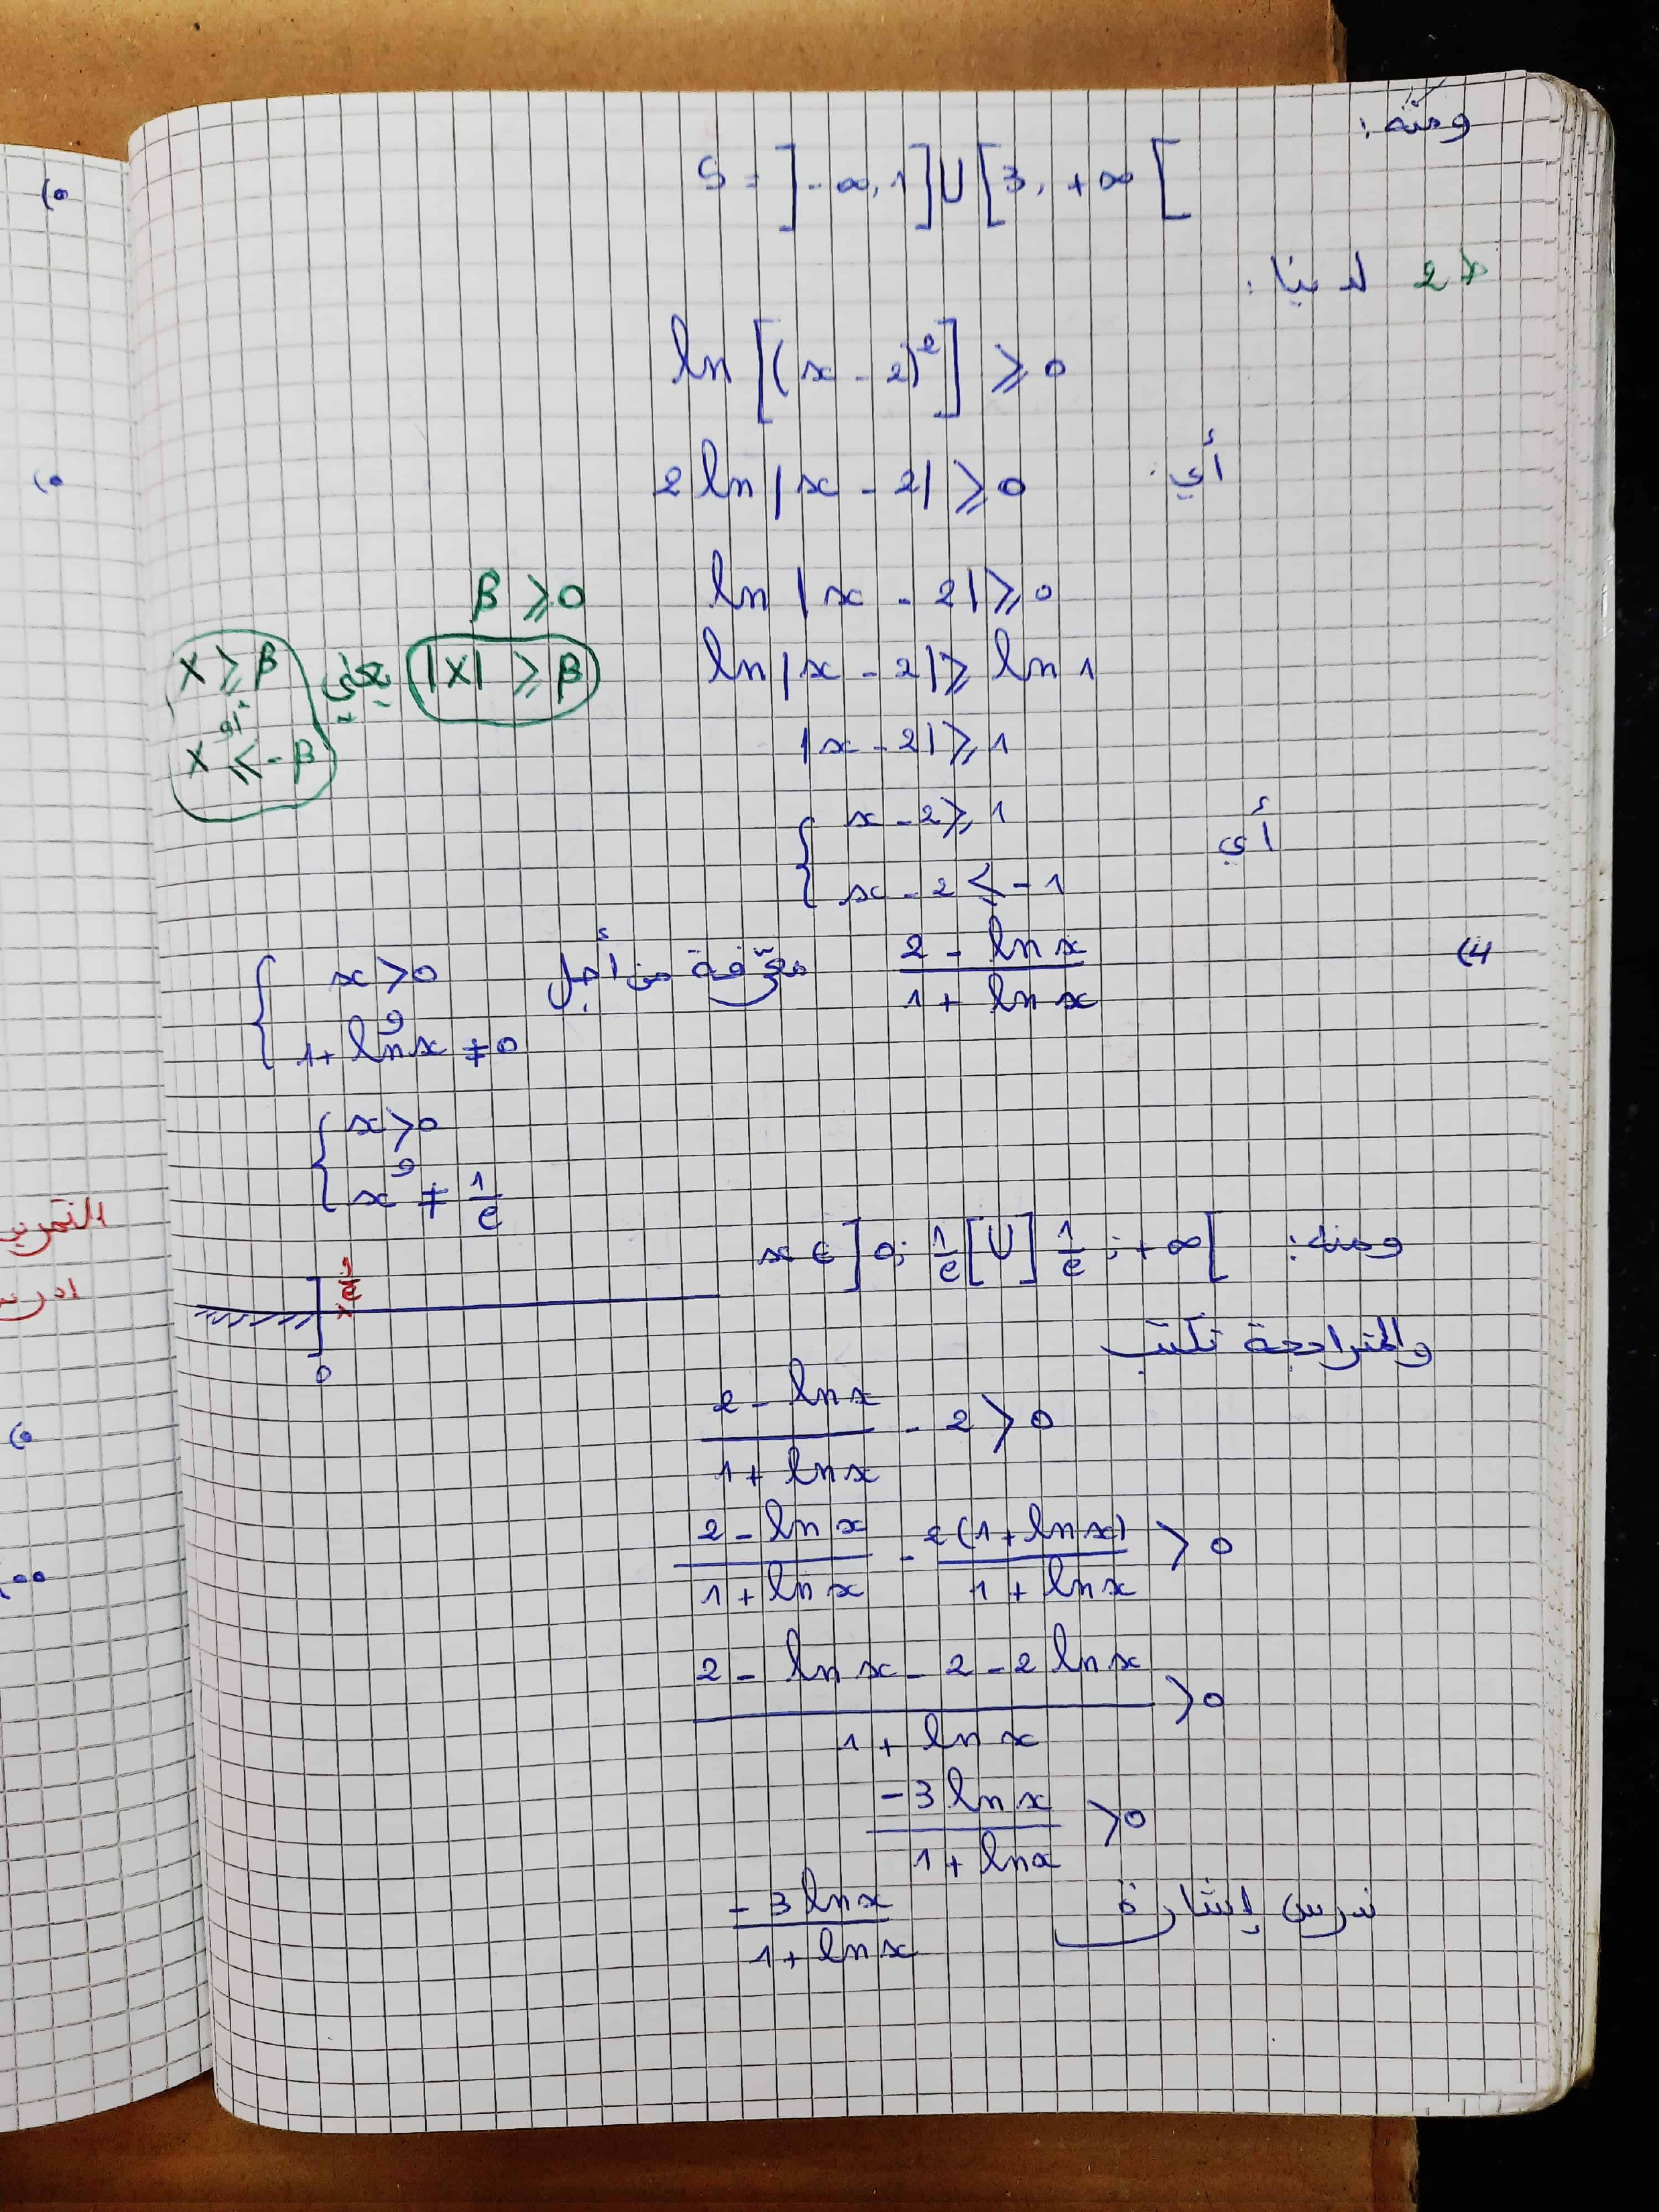 ومنه:
S = ]-∞, 1] U [3, +∞[
ط2 لدينا:
ln[(x - 2)²] ⩾ 0
أي: 2 ln|x - 2| ⩾ 0
ln|x - 2| ⩾ 0
β ⩾ 0
ln|x - 2| ⩾ ln 1
|X| ⩾ β يعني X ⩾ β أو X ⩽ -β
|x - 2| ⩾ 1
أي { x - 2 ⩾ 1
x - 2 ⩽ -1
4) (2 - ln x)/(1 + ln x) معرّفة من أجل { x > 0
و
1 + ln x ≠ 0
{ x > 0
و
x ≠ 1/e
ومنه: x ∈ ]0; 1/e[ U ]1/e; +∞[
1/e
0
والمتراجحة تكتب
(2 - ln x)/(1 + ln x) - 2 > 0
(2 - ln x)/(1 + ln x) - 2(1 + ln x)/(1 + ln x) > 0
(2 - ln x - 2 - 2 ln x)/(1 + ln x) > 0
(-3 ln x)/(1 + ln x) > 0
ندرس إشارة (-3 ln x)/(1 + ln x)